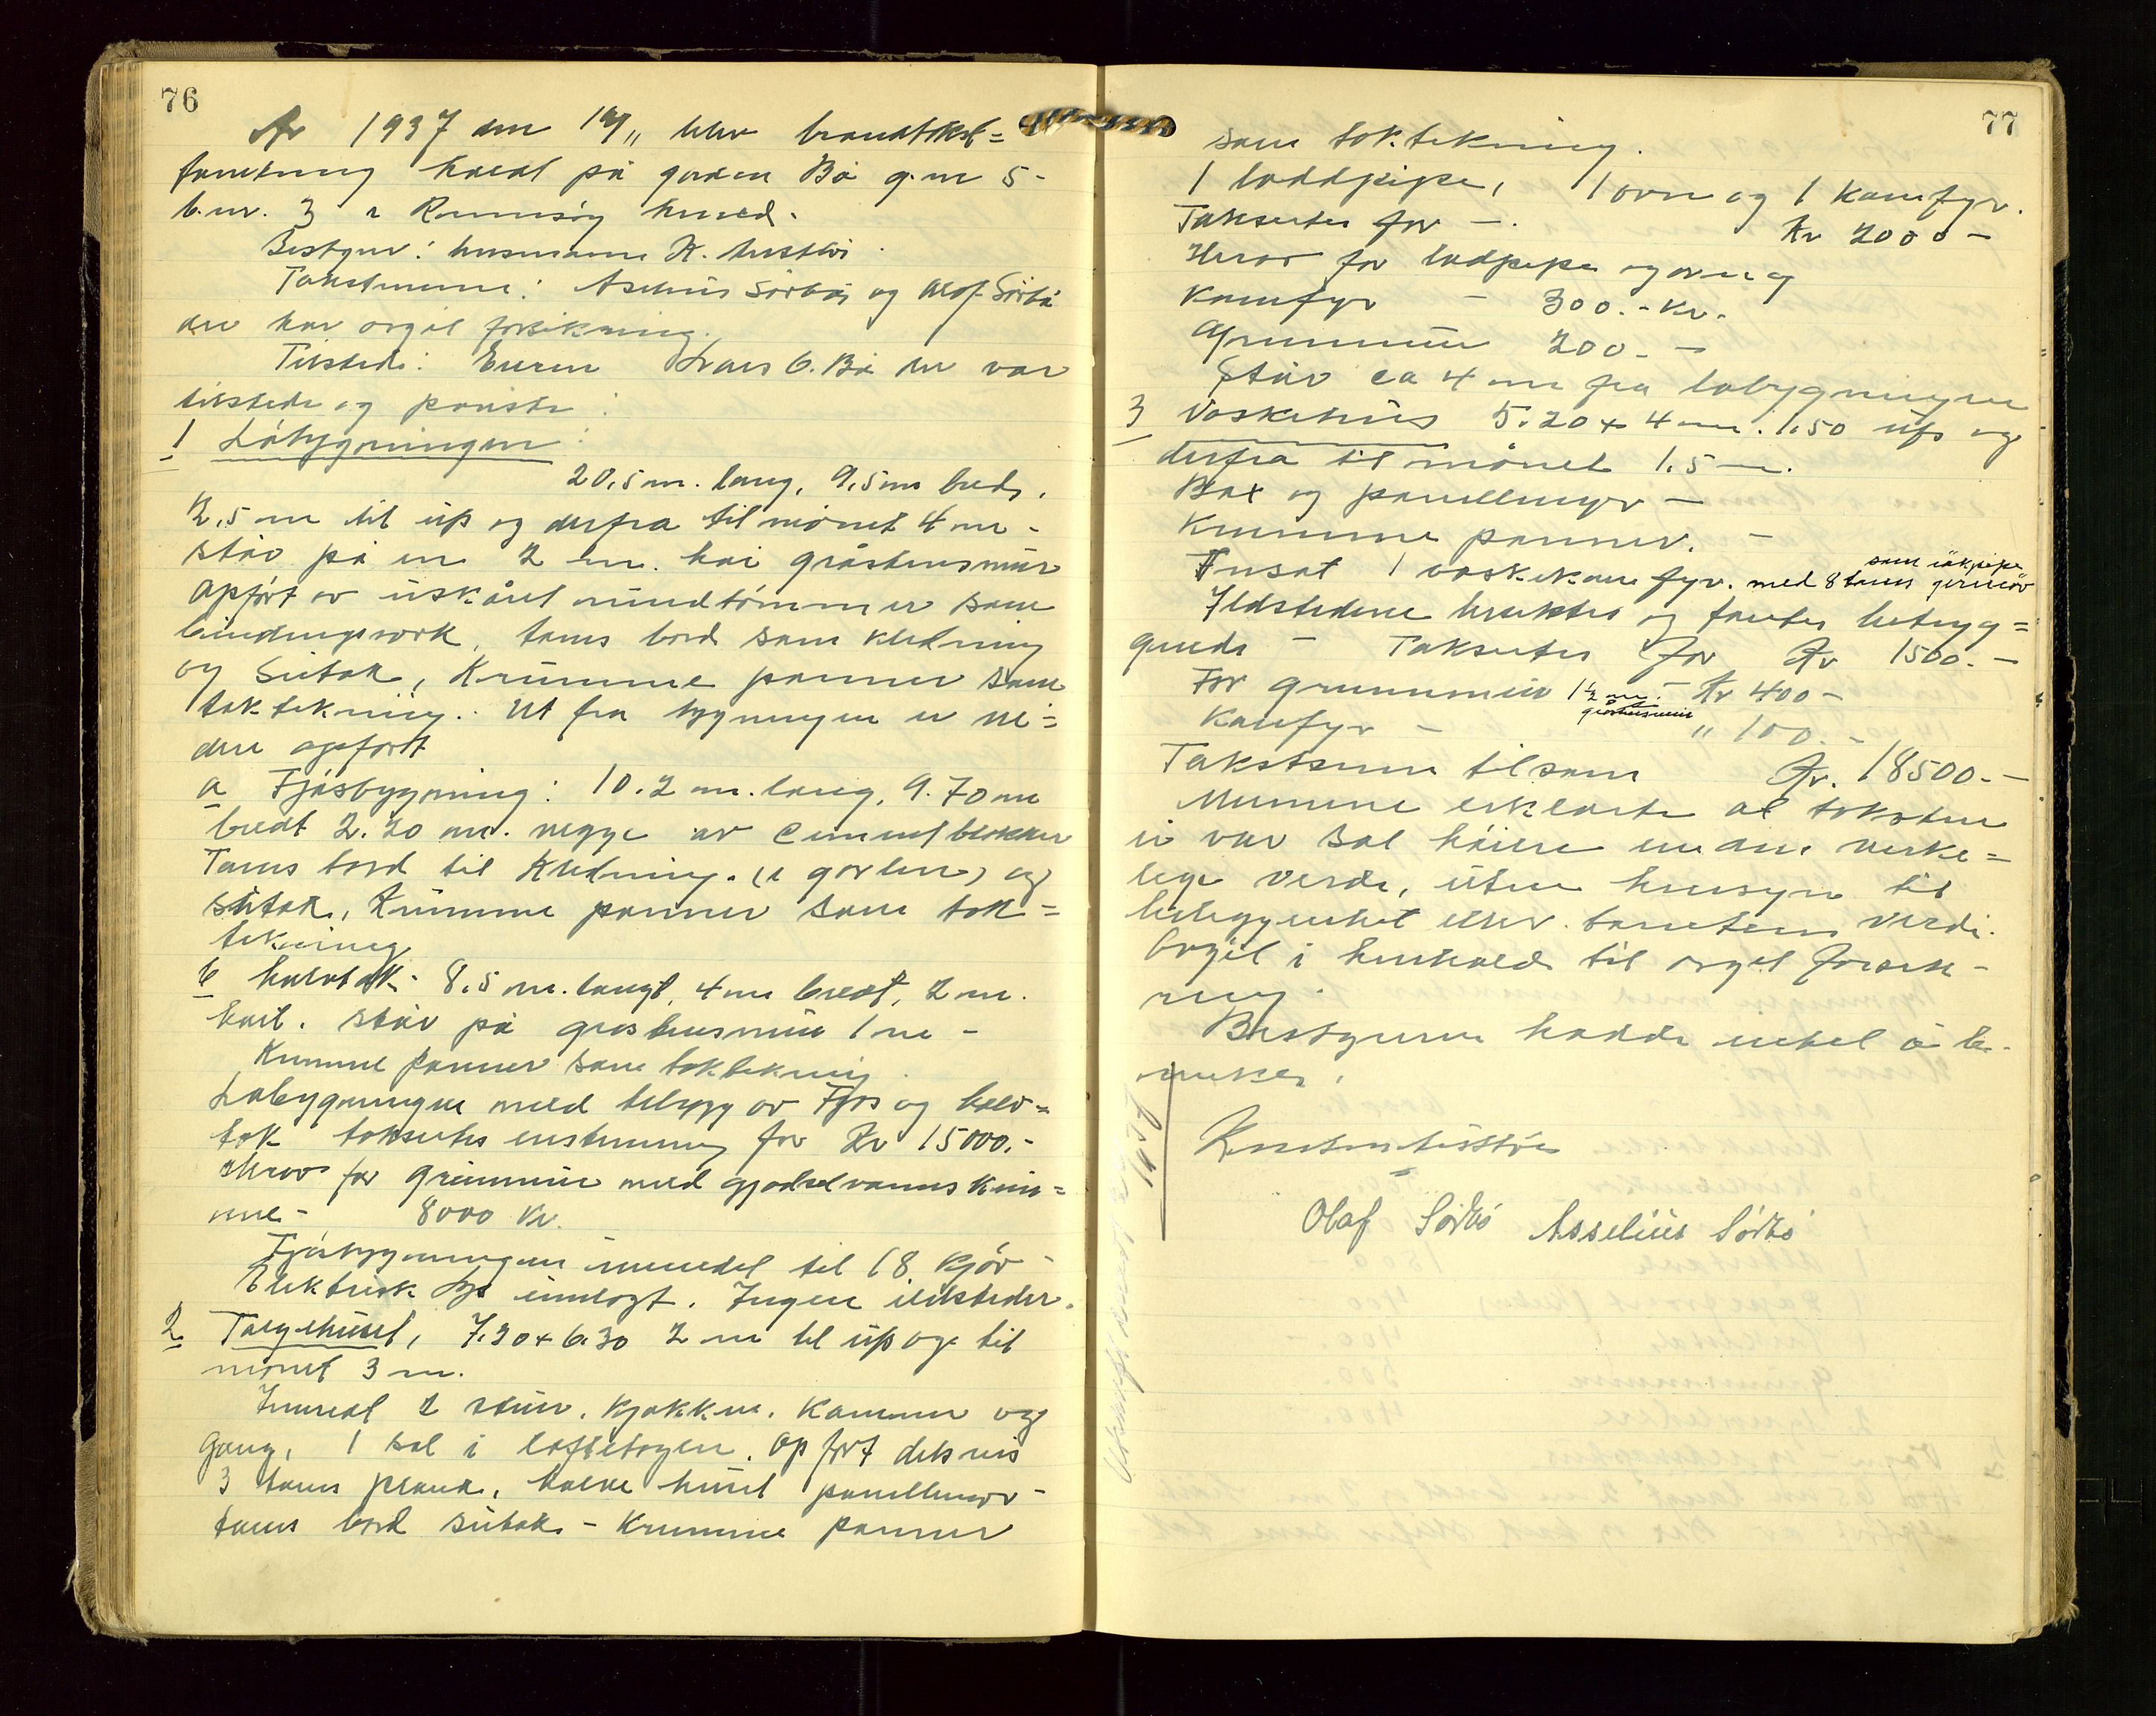 76
År 1937 den 19/11 blev brandtakst=
forretning holdt på garden Bø g.nr 5
b.nr. 3 i Rennesøy herred.
Bestyrer: lensmann K. Austbø
Takstmenn: Asselius Sørbø og Olaf Sørbø
der har avgit forsikring.
Tilstede: Eieren Lars O. Bø der var
tilstede og påviste:
1 Løbygningen:
20,5 m. lang, 9,5 m bred,
2,5 m til ups og derfra til mønet 4 m -
står på en 2 m. høi gråstensmur
opført av uskåret rundtømmer som
bindingsverk, toms bord som kledning
og sutak, Krumme panner som
taktekning. Ut fra bygningen er vi=
dere opført
a Fjøsbygning: 10.2 m. lang, 9.70 m
bredt 2.20 m. vegge av cementblokker
Toms bord til kledning. (i gavlene) og
sutak, Krumme panner som tak=
tekning
b halvtak 8.5 m. langt, 4 m bredt, 2 m.
høit. står på gråstensmur 1 m -
Krumme panner som taktekning.
Løbygningen med tilbygg av Fjøs og halv=
tak takseres enstemmig for Kr 15000.-
Herav for grunnmur med gjødselvannskum=
me - 8000 Kr.
Fjøsbygningen innredet til 18 kjør -
Elektrisk lys innlagt. Ingen ildsteder.
2 Torvhuset, 7.30 x 6.30 2 m til ups og til
mønet 3 m.
Innredet 2 stuer, kjøkken, kammer og
gang, 1 sal i loftetagen. Opført delsvis
3 toms plank, halve huset panelleneur -
toms bord sutak - Krumme panner
77
som taktekning.
1 loddpipe, 1 ovn og 1 komfyr.
Takseres for -. Kr 2000 -
Herav for lodpipe og ovn og
Komfyr - 300.- Kr.
Grunnmur 200.- -
Står ca 4 m fra løbygningen
3 Vaskehus 5.20 x 4 m. 1.50 ups og
derfra til mønet 1.5 m.
Bax og panelleneur -
Krumme panner. -
Innsat 1 vaskekomfyr. med 8 toms jernrør
som røkpipe
Ildstedene brukes og fantes betryg=
gende - Takseres for Kr 1500.-
For grunnmur 1½ m. - Kr 400 -
gråstensmur
Komfyr - " 100.-
Takstsum tilsam Kr. 18500.-
Mennene erklærte at taksten
ei var sat høiere enn den verke=
lige verdi, uten hensyn til
beliggenhet eller tomtens verdi.
Avgit i henhold til avgit forsik-
ring.
Bestyreren hadde intet å be-
merke.
Knut Austbø
Olaf Sørbø Asselius Sørbø